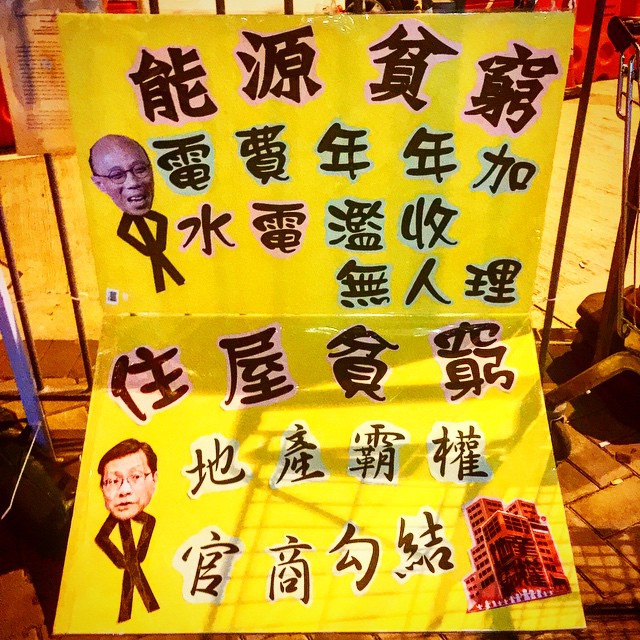 能源貧窮
電費年年加
水電濫收
無人理
住屋貧窮
地產霸權
官商勾結